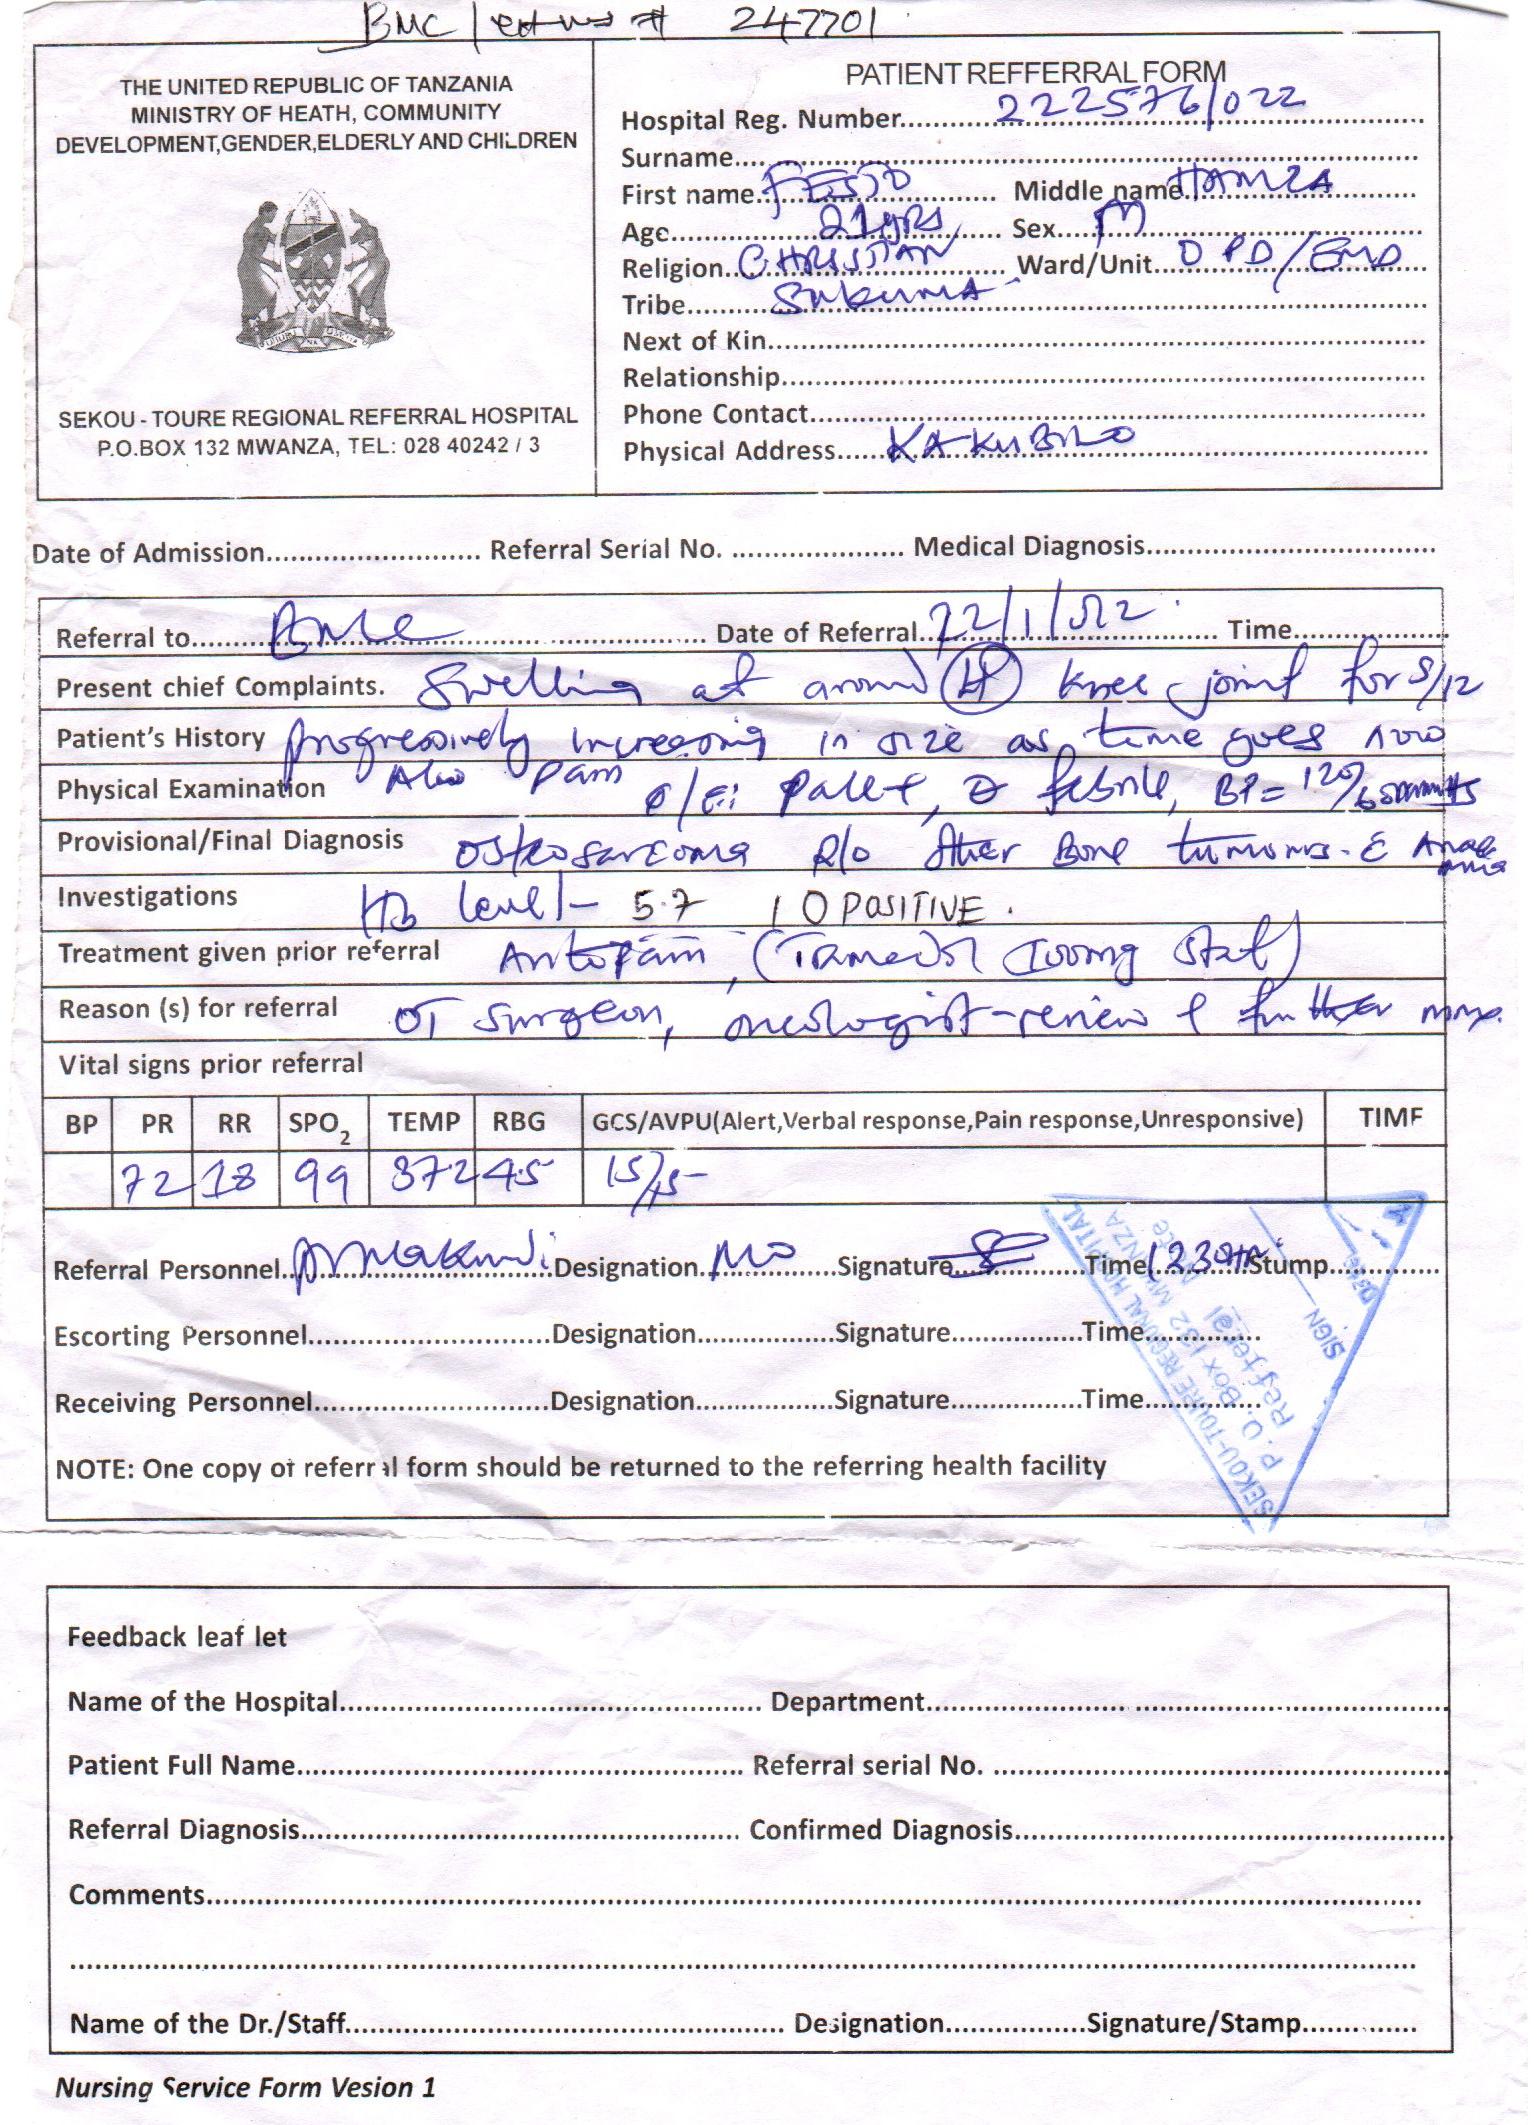 BMC 247701
THE UNITED REPUBLIC OF TANZANIA
MINISTRY OF HEATH, COMMUNITY
DEVELOPMENT,GENDER,ELDERLY AND CHILDREN
SEKOU - TOURE REGIONAL REFERRAL HOSPITAL
P.O.BOX 132 MWANZA, TEL: 028 40242 / 3
PATIENT REFFERRAL FORM
Hospital Reg. Number 222576/022
Surname
First name FESTO Middle name HAMZA
Age 21yrs Sex M
Religion CHRISTIAN Ward/Unit OPD/EMD
Tribe Sukuma
Next of Kin
Relationship
Phone Contact
Physical Address
Date of Admission Referral Serial No. Medical Diagnosis
Referral to BMC Date of Referral Time
Present chief Complaints. Swelling at around knee joint for
Patient's History progressively increasing in size as time goes
Physical Examination Also Pain O/E: Pale+, febrile, BP=
Provisional/Final Diagnosis Osteosarcoma R/o other Bone tumours
Investigations Hb level- 5.7 O POSITIVE.
Treatment given prior referral Antipain, (Tramadol 100mg stat)
Reason (s) for referral OT surgeon, oncologist-review & further
Vital signs prior referral
BP PR RR SPO2 TEMP RBG GCS/AVPU(Alert,Verbal response,Pain response,Unresponsive) TIME
72 18 99 37.2 4.5 15/15
Referral Personnel Designation MO Signature Time Stump
Escorting Personnel Designation Signature Time
Receiving Personnel Designation Signature Time
NOTE: One copy of referral form should be returned to the referring health facility
SEKOU-TOURE REGIONAL HOSPITAL
P. O. Box 132 MWANZA
Refferal
SIGN
Date
Feedback leaf let
Name of the Hospital Department
Patient Full Name Referral serial No.
Referral Diagnosis Confirmed Diagnosis
Comments
Name of the Dr./Staff Designation Signature/Stamp
Nursing Service Form Vesion 1